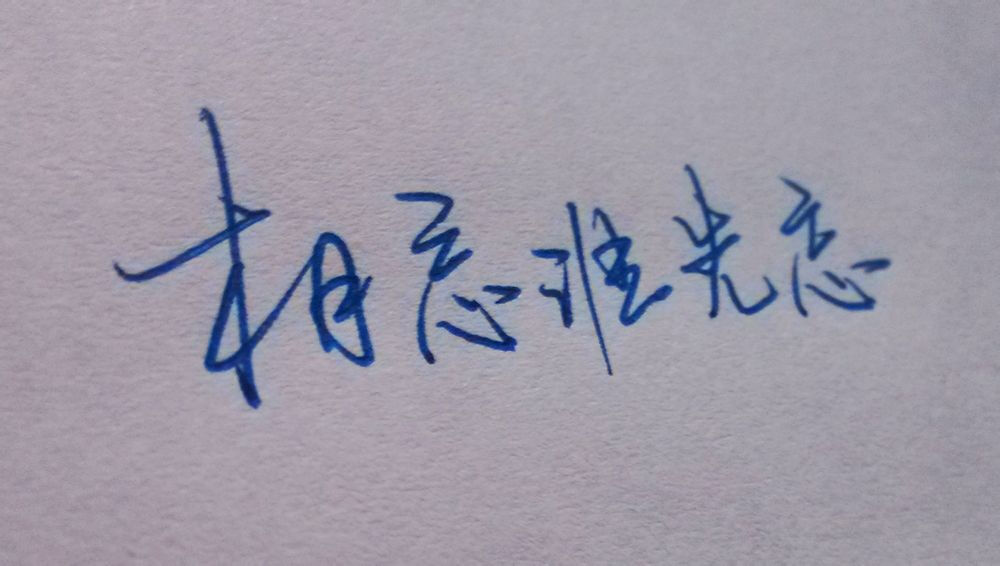 相忘谁先忘